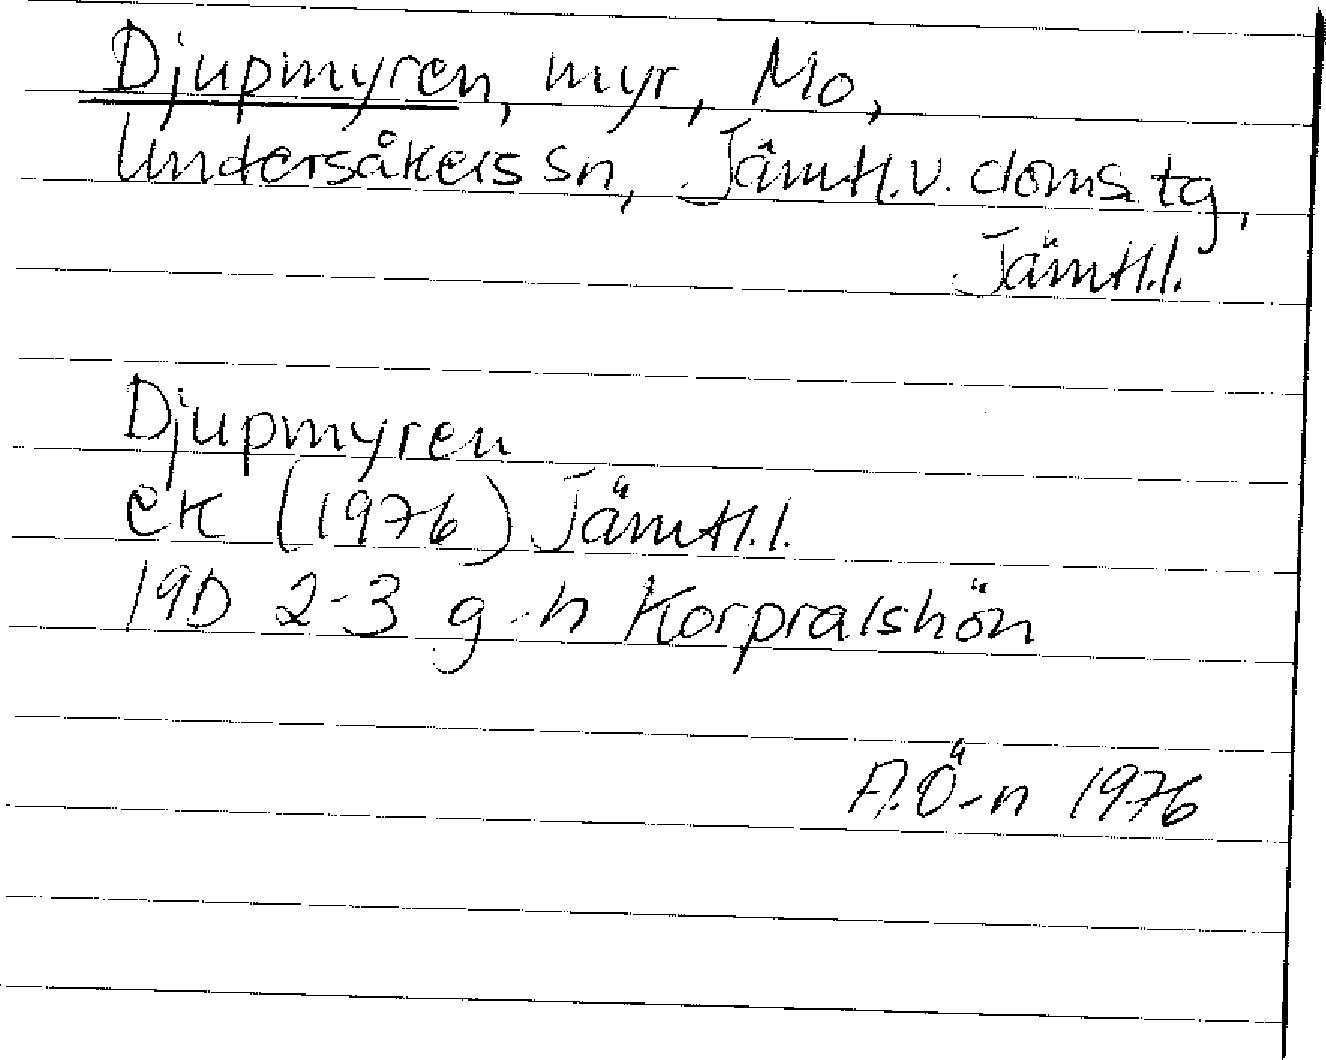 Djupmyren, myr, Mo,
Undersåkers sn, Jämtl.v. doms.tg,
Jämtl.l.
Djupmyren
ek (1976) Jämtl.l.
19D 2-3 g-h Korpralshön
A.Ö-n 1976